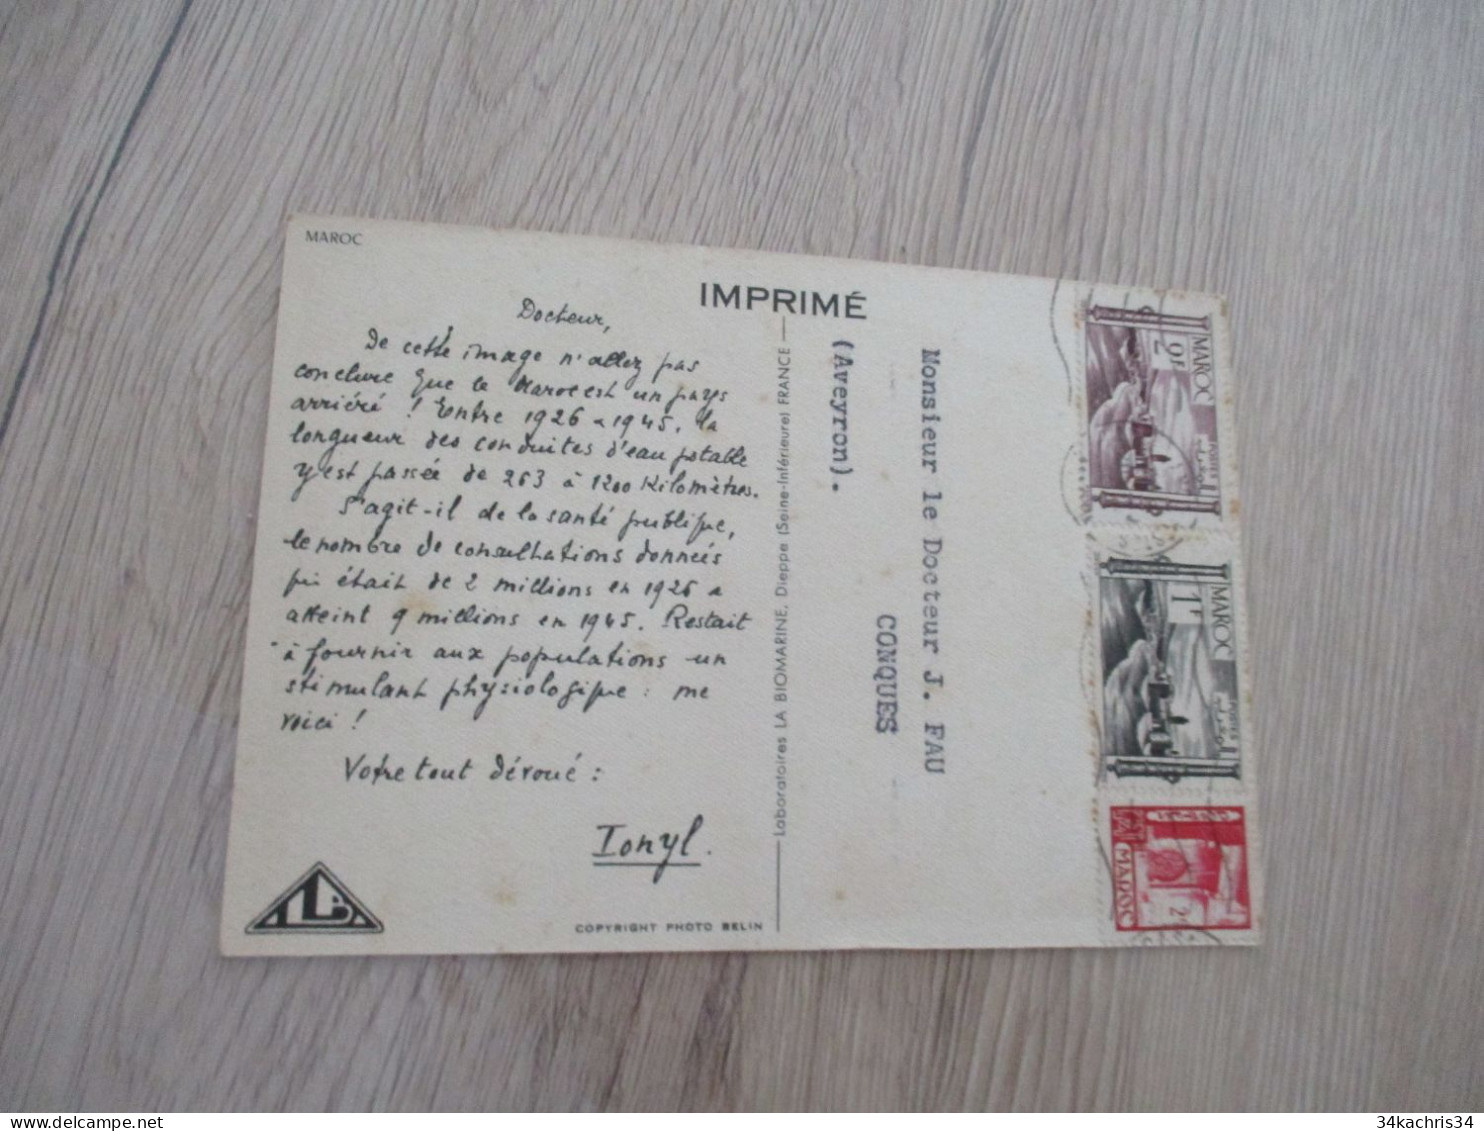 MAROC
IMPRIMÉ
Docteur,
De cette image n'allez pas
conclure que le Maroc est un pays
arriéré ! Entre 1926 & 1945, la
longueur des conduites d'eau potable
y est passée de 263 à 1200 Kilomètres.
S'agit-il de la santé publique,
le nombre de consultations données
qui était de 2 millions en 1926 a
atteint 9 millions en 1945. Restait
à fournir aux populations un
stimulant physiologique : me
voici !
Votre tout dévoué :
Ionyl.
COPYRIGHT PHOTO BELIN
Laboratoires LA BIOMARINE, Dieppe (Seine-Inférieure) FRANCE
Monsieur le Docteur J. FAU
CONQUES
(Aveyron).
MAROC
POSTES
MAROC
1F
POSTES
MAROC
34kachris34